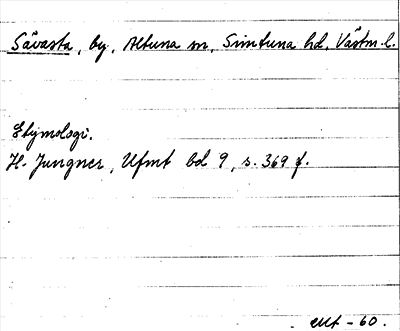 Sävasta, by, Altuna sn, Simtuna hd, Västm.l.
Etymologi.
H. Jungner, Ufmt bd 9, s. 369 f.
- 60.